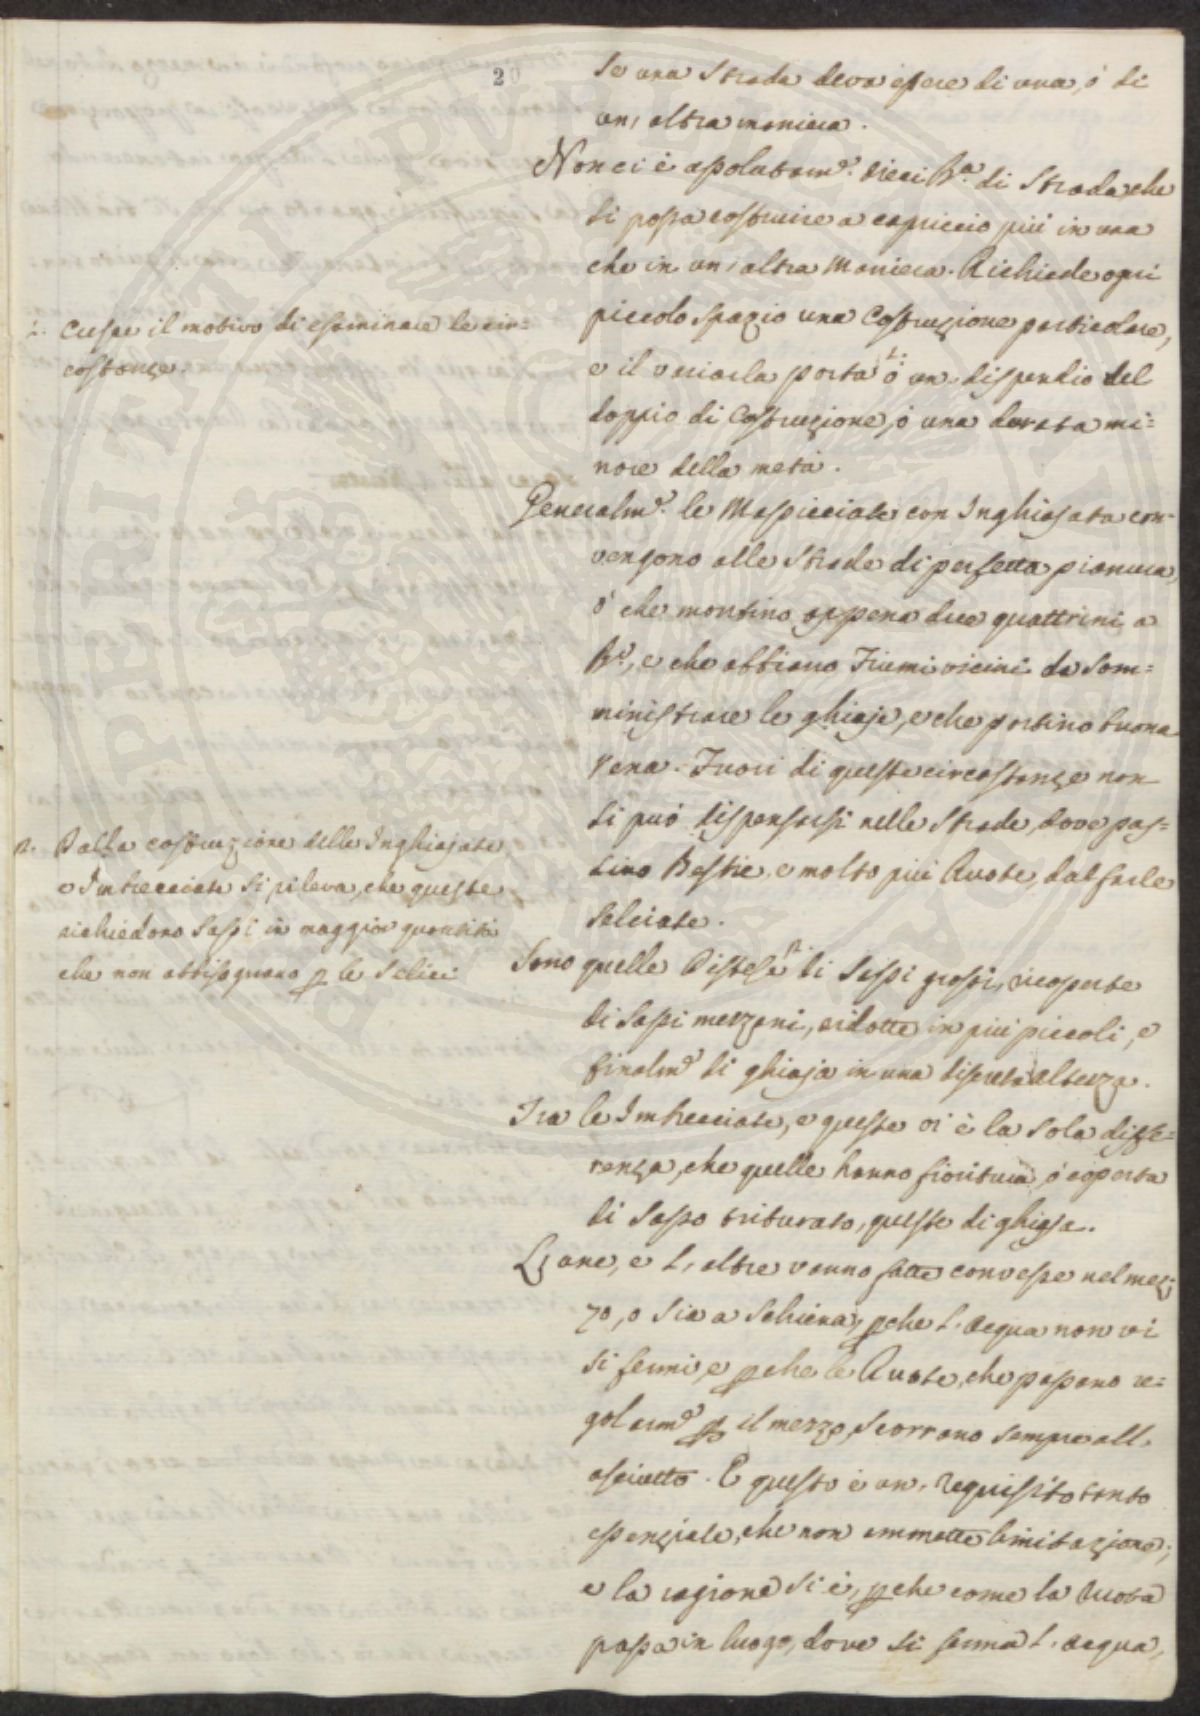 20
se una Strada deva essere di una, ó di
un, altra maniera.
Non ci è assolutam.e dieci B.a di Strada, che
si possa costruire a capriccio più in una
che in un, altra Maniera. Richiede ogni
piccolo Spazio una Costruzione particolare,
e il variarla porta 1: ó un, dispendio del
doppio di Costruzione, ó una durata mi=
nore della metà.
Generalm.e le Massicciate con Inghiajata con=
vengono alle Strade di perfetta pianura,
ó che montino appena due quattrini a
B.o, e che abbiano Fiumi vicini da som=
ministrare le ghiaje, e che portino buona
Vena. Fuori di queste circostanze non
si può dispensarsi nelle Strade, dove pas=
sino Bestie, e molto più Ruote, dal farle
selciate.
Sono quelle Distese 2. di Sassi grossi, ricoperte
di Sassi mezzani, ridotte in più piccoli, e
finalm.e di ghiaja in una discreta altezza.
Fra le Imbrecciate, e queste vi è la sola diffe=
renza, che quelle hanno fioritura, ó coperta
di Sasso triturato, queste di ghiaja.
L, une, e l, altre vanno fatte convesse nel mez=
zo, o sia a Schiena, pche l, acqua non vi
si fermi, e pche le Ruote, che passano re=
golarm.e p il mezzo, scorrano sempre all,
asciutto. E questo è un, requisito tanto
essenziale, che non ammette limitazione;
e la ragione si è, pche come la Ruota
passa in luogo, dove si ferma l, acqua,
1. Cresce il motivo di esaminare le cir=
costanze.
2. Dalla costruzione delle Inghiajate
e Imbrecciate si rileva, che queste
richiedono Sassi in maggior quantità
che non abbisognano p le Selici